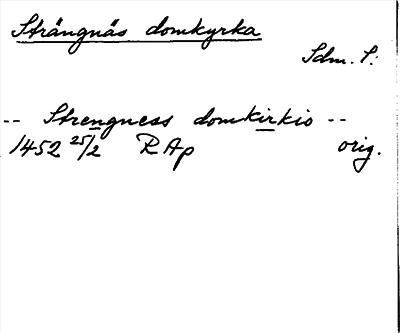 Strängnäs domkyrka
Sdm. S:
-- Strengness domkirkio --
1452 25/2 RAp orig.